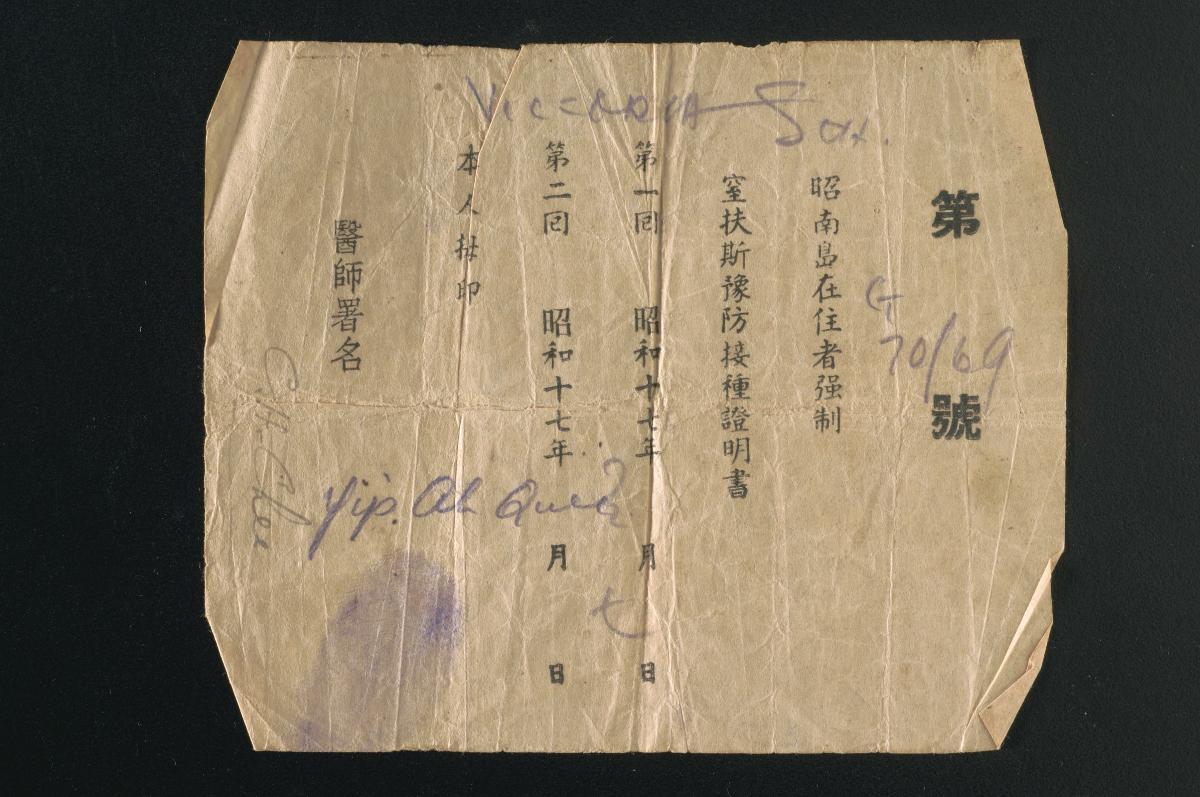 VICTORIA Sch.
第 G 70/69 號
昭南島在住者强制
窒扶斯豫防接種證明書
第一囘 昭和十七年 月 七日
第二囘 昭和十七年 月 日
本人拇印
Yip. Ah
醫師署名